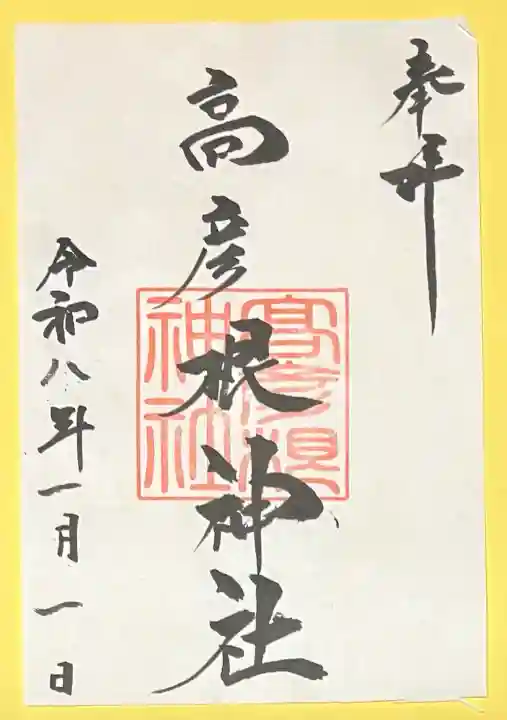 奉拝
高彦根神社
高彦根
神社
令和八年一月一日